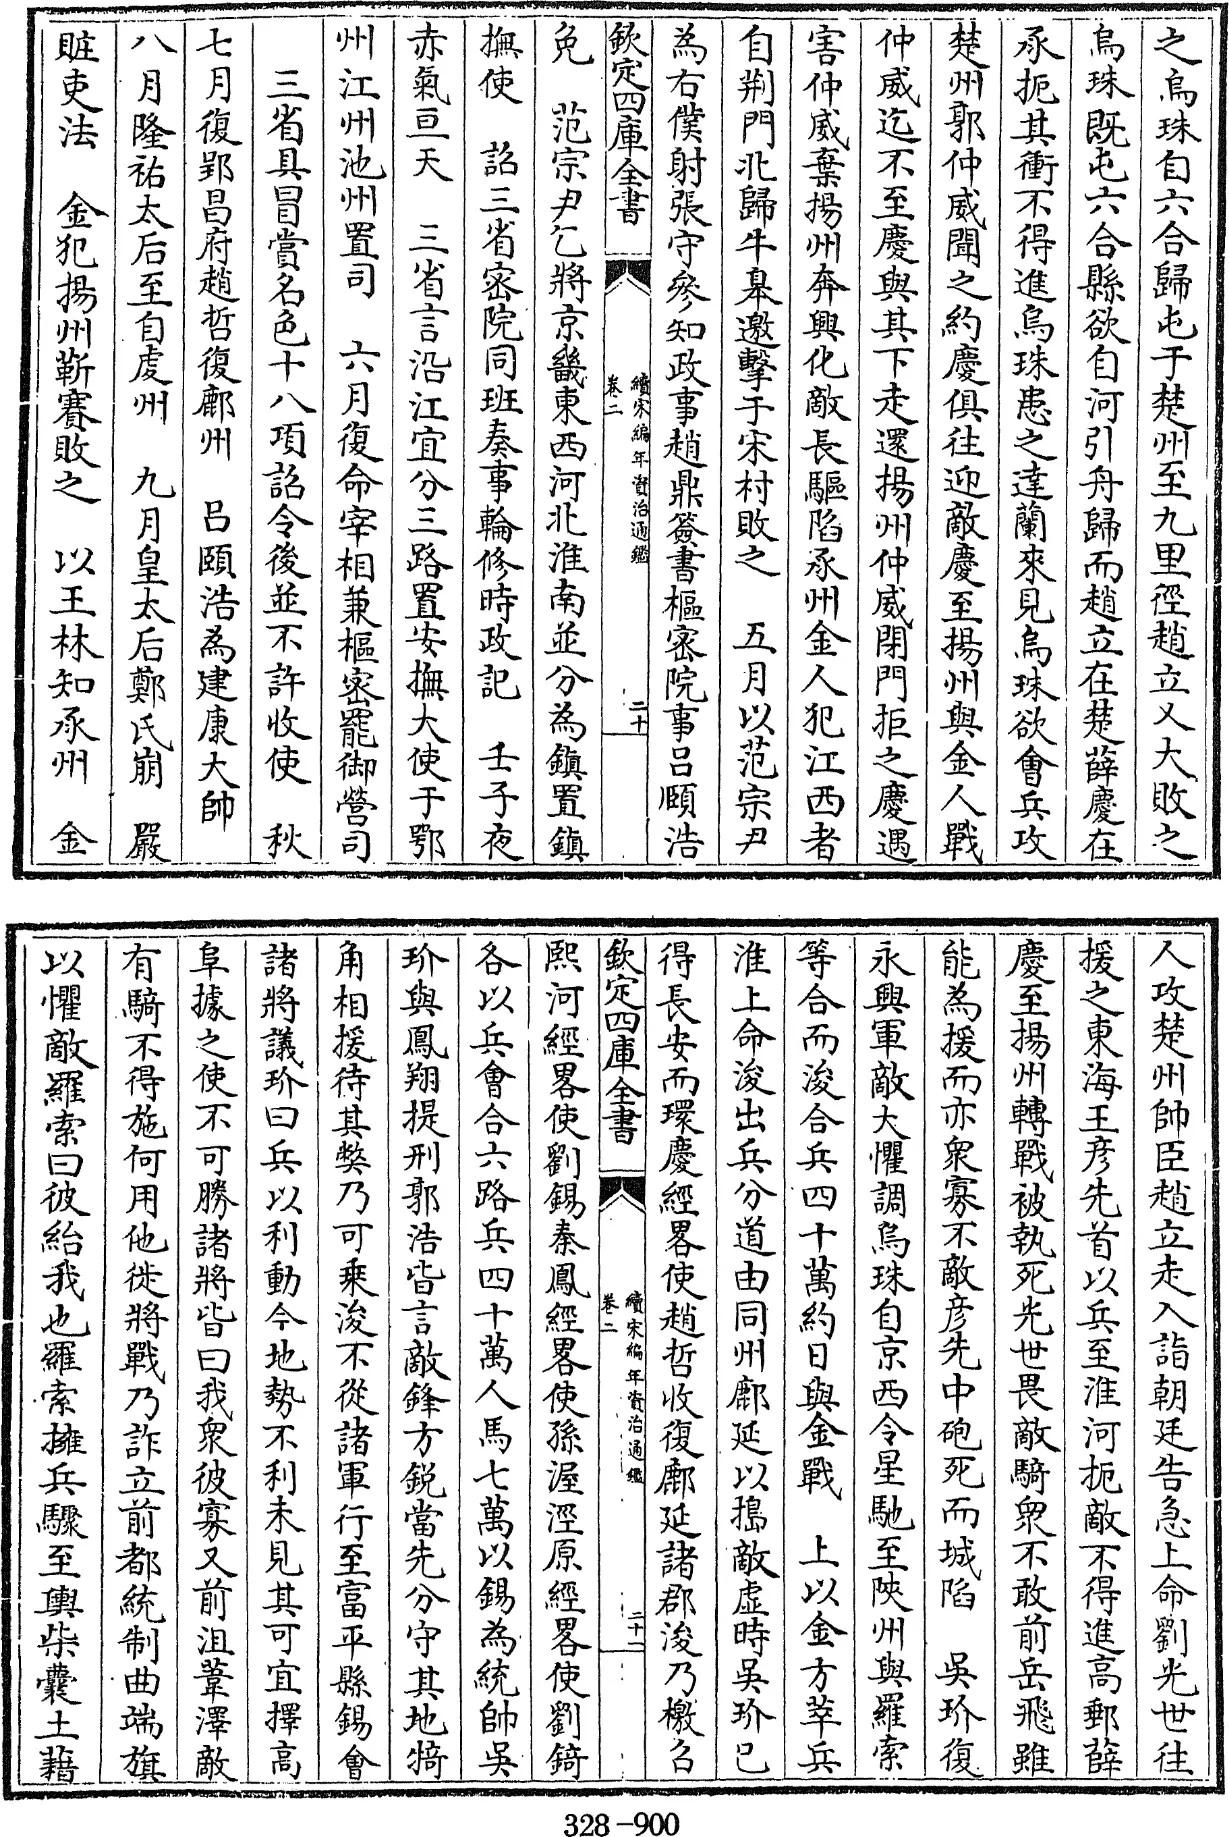 之烏珠自六合歸屯于楚州至九里徑趙立又大敗之
烏珠既屯六合縣欲自河引舟歸而趙立在楚薛慶在
承扼其衝不得進烏珠患之達蘭來見烏珠欲會兵攻
楚州郭仲威聞之約慶俱往迎敵慶至揚州與金人戰
仲威迄不至慶與其下走還揚州仲威閉門拒之慶遇
害仲威棄揚州奔興化敵長驅陷承州金人犯江西者
自荆門北歸牛臯邀擊于宋村敗之　五月以范宗尹
為右僕射張守參知政事趙鼎簽書樞密院事呂頤浩
欽定四庫全書
續宋編年資治通鑑
卷二
二十
免　范宗尹乞將京畿東西河北淮南並分為鎮置鎮
撫使　詔三省密院同班奏事輪修時政記　壬子夜
赤氣亘天　三省言沿江宜分三路置安撫大使于鄂
州江州池州置司　六月復命宰相兼樞密罷御營司
三省具冒賞名色十八項詔令後並不許收使　秋
七月復郢昌府趙哲復鄜州　呂頤浩為建康大帥
八月隆祐太后至自虔州　九月皇太后鄭氏崩　嚴
賍吏法　金犯揚州靳賽敗之　以王林知承州　金
人攻楚州帥臣趙立走入詣朝廷告急上命劉光世往
援之東海王彥先首以兵至淮河扼敵不得進高郵薛
慶至揚州轉戰被執死光世畏敵騎衆不敢前岳飛雖
能為援而亦衆寡不敵彥先中砲死而城陷　吳玠復
永興軍敵大懼調烏珠自京西令星馳至陝州與羅索
等合而浚合兵四十萬約日與金戰　上以金方萃兵
淮上命浚出兵分道由同州鄜延以搗敵虛時吳玠已
得長安而環慶經畧使趙哲收復鄜延諸郡浚乃檄召
欽定四庫全書
續宋編年資治通鑑
卷二
二十一
熙河經畧使劉錫秦鳳經畧使孫渥涇原經畧使劉錡
各以兵會合六路兵四十萬人馬七萬以錫為統帥吳
玠與鳳翔提刑郭浩皆言敵鋒方銳當先分守其地犄
角相援待其獘乃可乘浚不從諸軍行至富平縣錫會
諸將議玠曰兵以利動今地勢不利未見其可宜擇高
阜據之使不可勝諸將皆曰我衆彼寡又前沮葦澤敵
有騎不得施何用他徙將戰乃詐立前都統制曲端旗
以懼敵羅索曰彼紿我也羅索擁兵驟至輿柴囊土藉
328-900